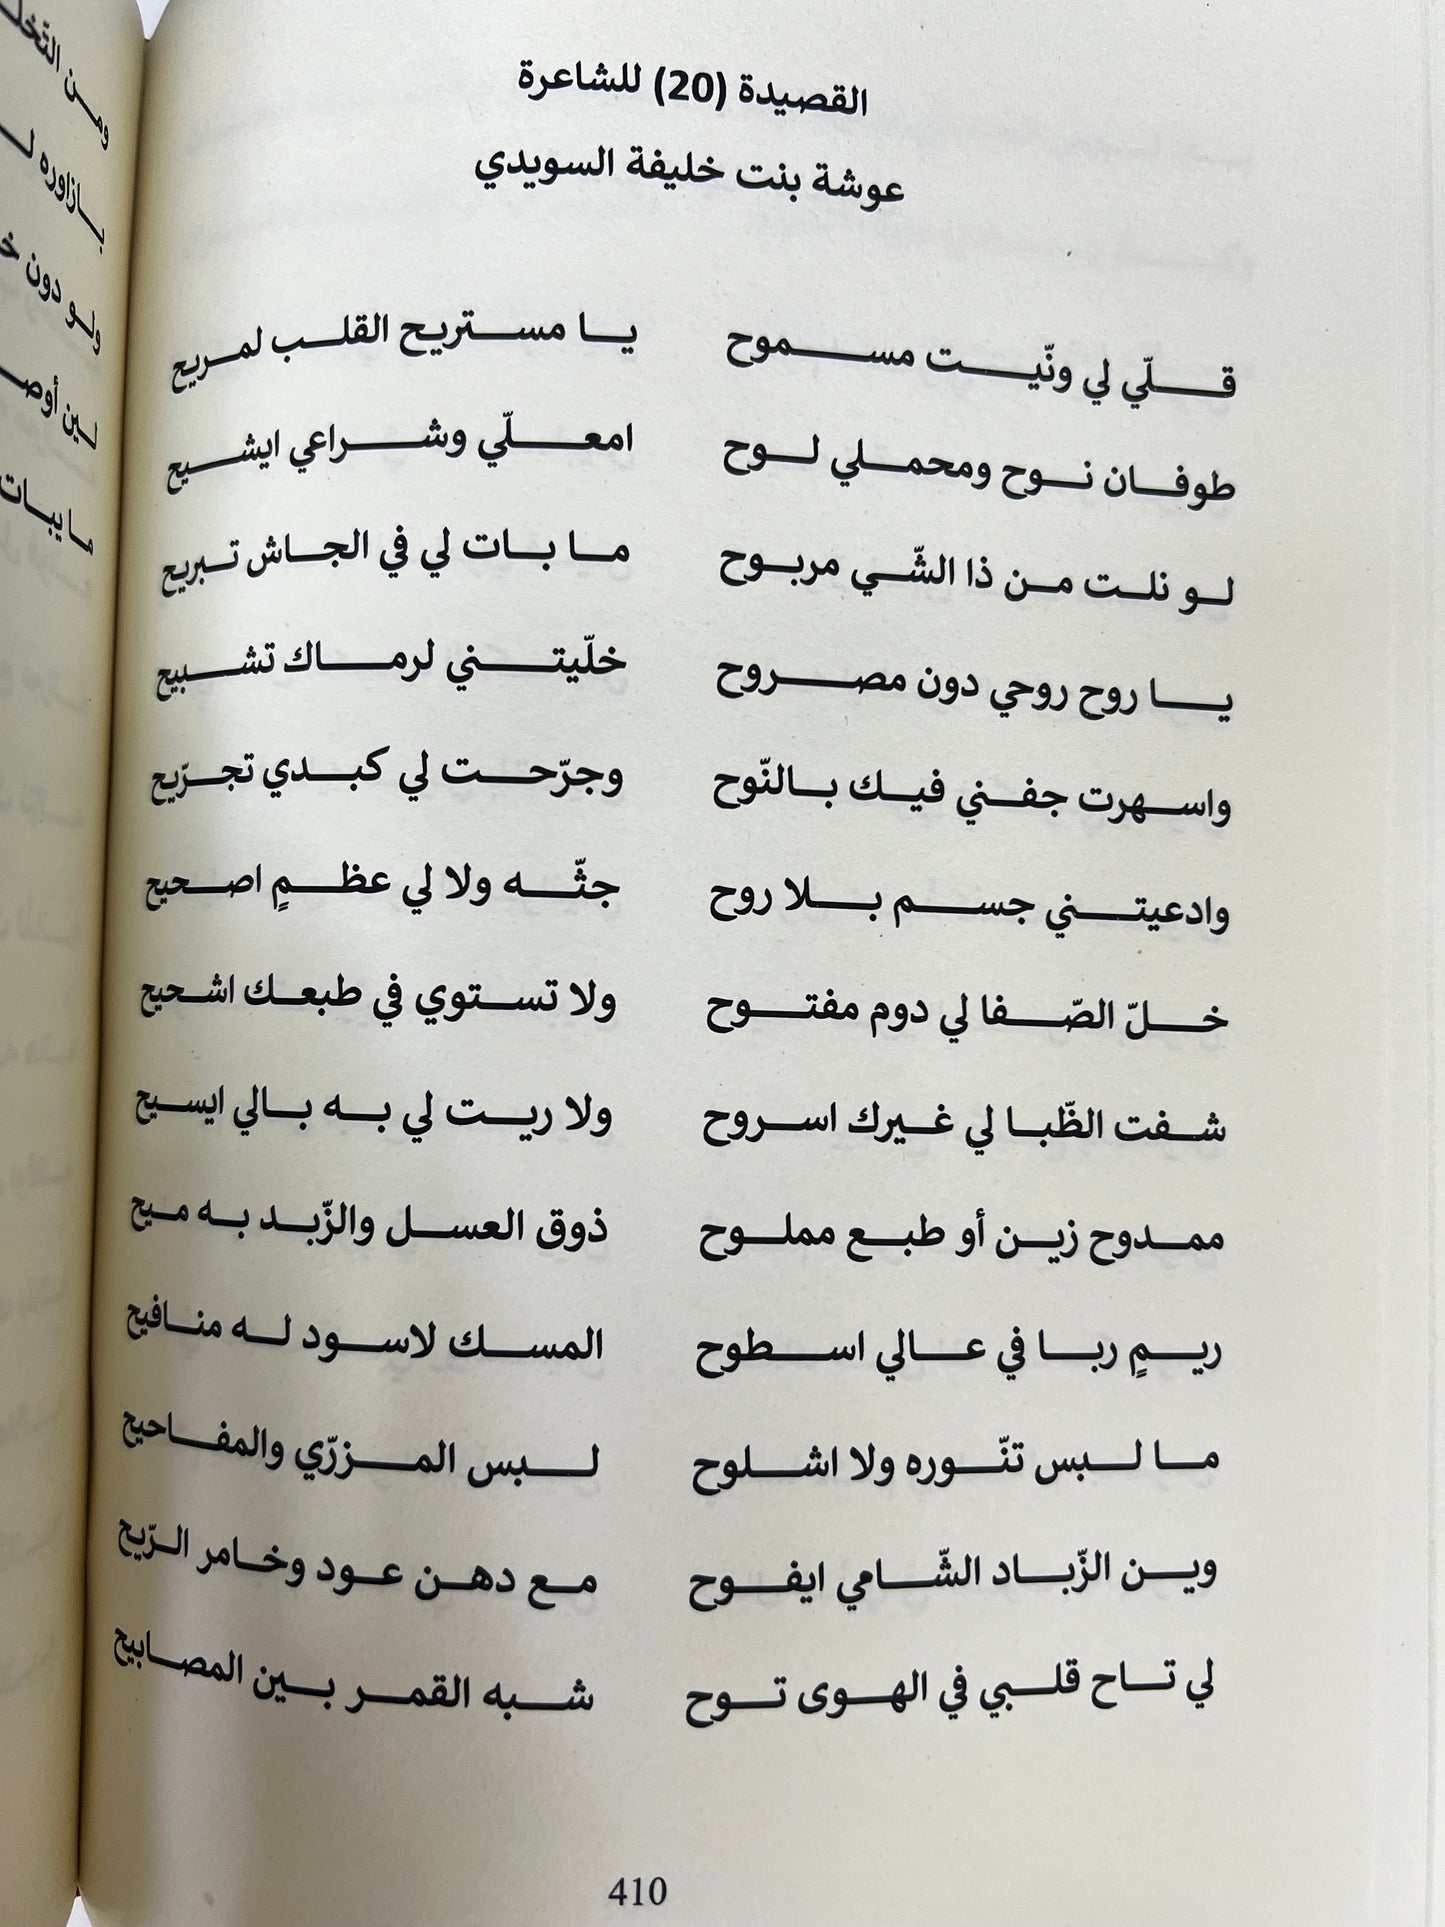 القصيدة (20) للشاعرة
عوشة بنت خليفة السويدي
قلّي لي ونّيت مسموح يا مستريح القلب لمريح
طوفان نوح ومحملي لوح امعلّي وشراعي ايشيح
لو نلت من ذا الشّي مربوح ما بات لي في الجاش تبريح
يا روح روحي دون مصروح خلّيتني لرماك تشبيح
واسهرت جفني فيك بالنّوح وجرّحت لي كبدي تجرّيح
وادعيتني جسم بلا روح جثّه ولا لي عظمٍ اصحيح
خلّ الصّفا لي دوم مفتوح ولا تستوي في طبعك اشحيح
شفت الظّبا لي غيرك اسروح ولا ريت لي به بالي ايسيح
ممدوح زين أو طبع مملوح ذوق العسل والزّبد به ميح
ريمٍ ربا في عالي اسطوح المسك لاسود له منافيح
ما لبس تنّوره ولا اشلوح لبس المزرّي والمفاحيح
وين الزّباد الشّامي ايفوح مع دهن عود وخامر الرّيح
لي تاح قلبي في الهوى توح شبه القمر بين المصابيح
410
ومن
بازاوره
ولو دون
لين
ما يبات